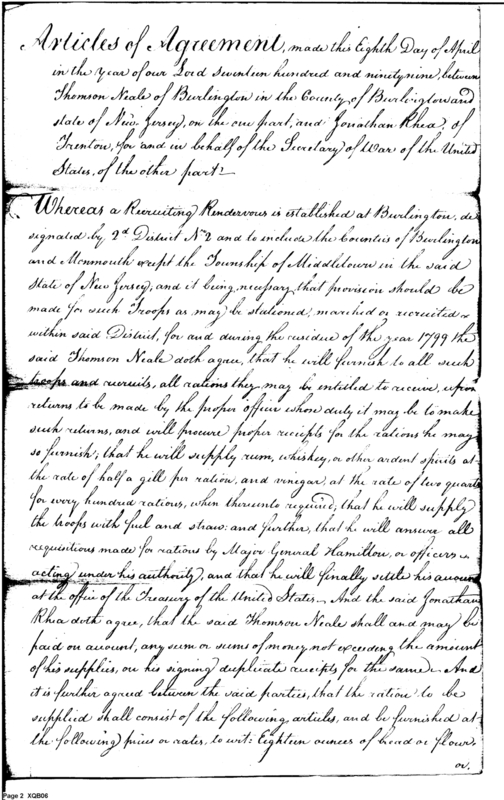 Articles of Agreement, made this Eighth Day of April
in the year of our Lord Seventeen hundred and ninety nine, between
Thomson Neale of Burlington in the County of Burlington and
state of New Jersey, on the one part, and Jonathan Rhea, of
Trenton, for and in behalf of the Secretary of War of the United
States, of the other part:
Whereas a Recruiting Rendezvous is established at Burlington, de
signated by 2d District No 2 and to include the Counties of Burlington
and Monmouth except the Township of Middletown in the said
State of New Jersey; and it being necessary that provision should be
made for such Troops as may be stationed, marched or recruited
within said District, for and during the residue of the year 1799 the
said Thomson Neale doth agree, that he will furnish to all such
troops and recruits, all rations they may be entitled to receive, upon
returns to be made by the proper officer whose duty it may be to make
such returns, and will procure proper receipts for the rations he may
so furnish; that he will supply rum, whiskey, or other ardent spirits at
the rate of half a gill per ration, and vinegar, at the rate of two quarts
for every hundred rations, when thereunto required, that he will supply
the troops with fuel and straw: and further, that he will answer all
requisitions made for rations by Major General Hamilton, or officers
acting under his authority, and that he will finally settle his account
at the office of the Treasury of the United States. And the said Jonathan
Rhea doth agree, that the said Thomson Neale shall and may be
paid on account, any sum or sums of money not exceeding the amount
of his supplies, on his signing duplicate receipts for the same. And
it is further agreed between the said parties, that the ration to be
supplied shall consist of the following articles, and be furnished at
the following prices or rates, to wit: Eighteen ounces of bread or flour
or.
Page 2 XQB06